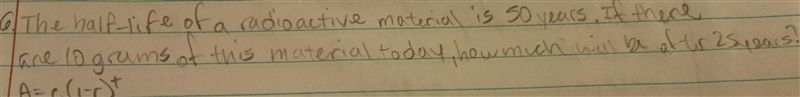 6. The half-life of a radioactive material is 50 years. If there
are 10 grams of this material today, how much will be after 25 years?
A=c(1-r)^t